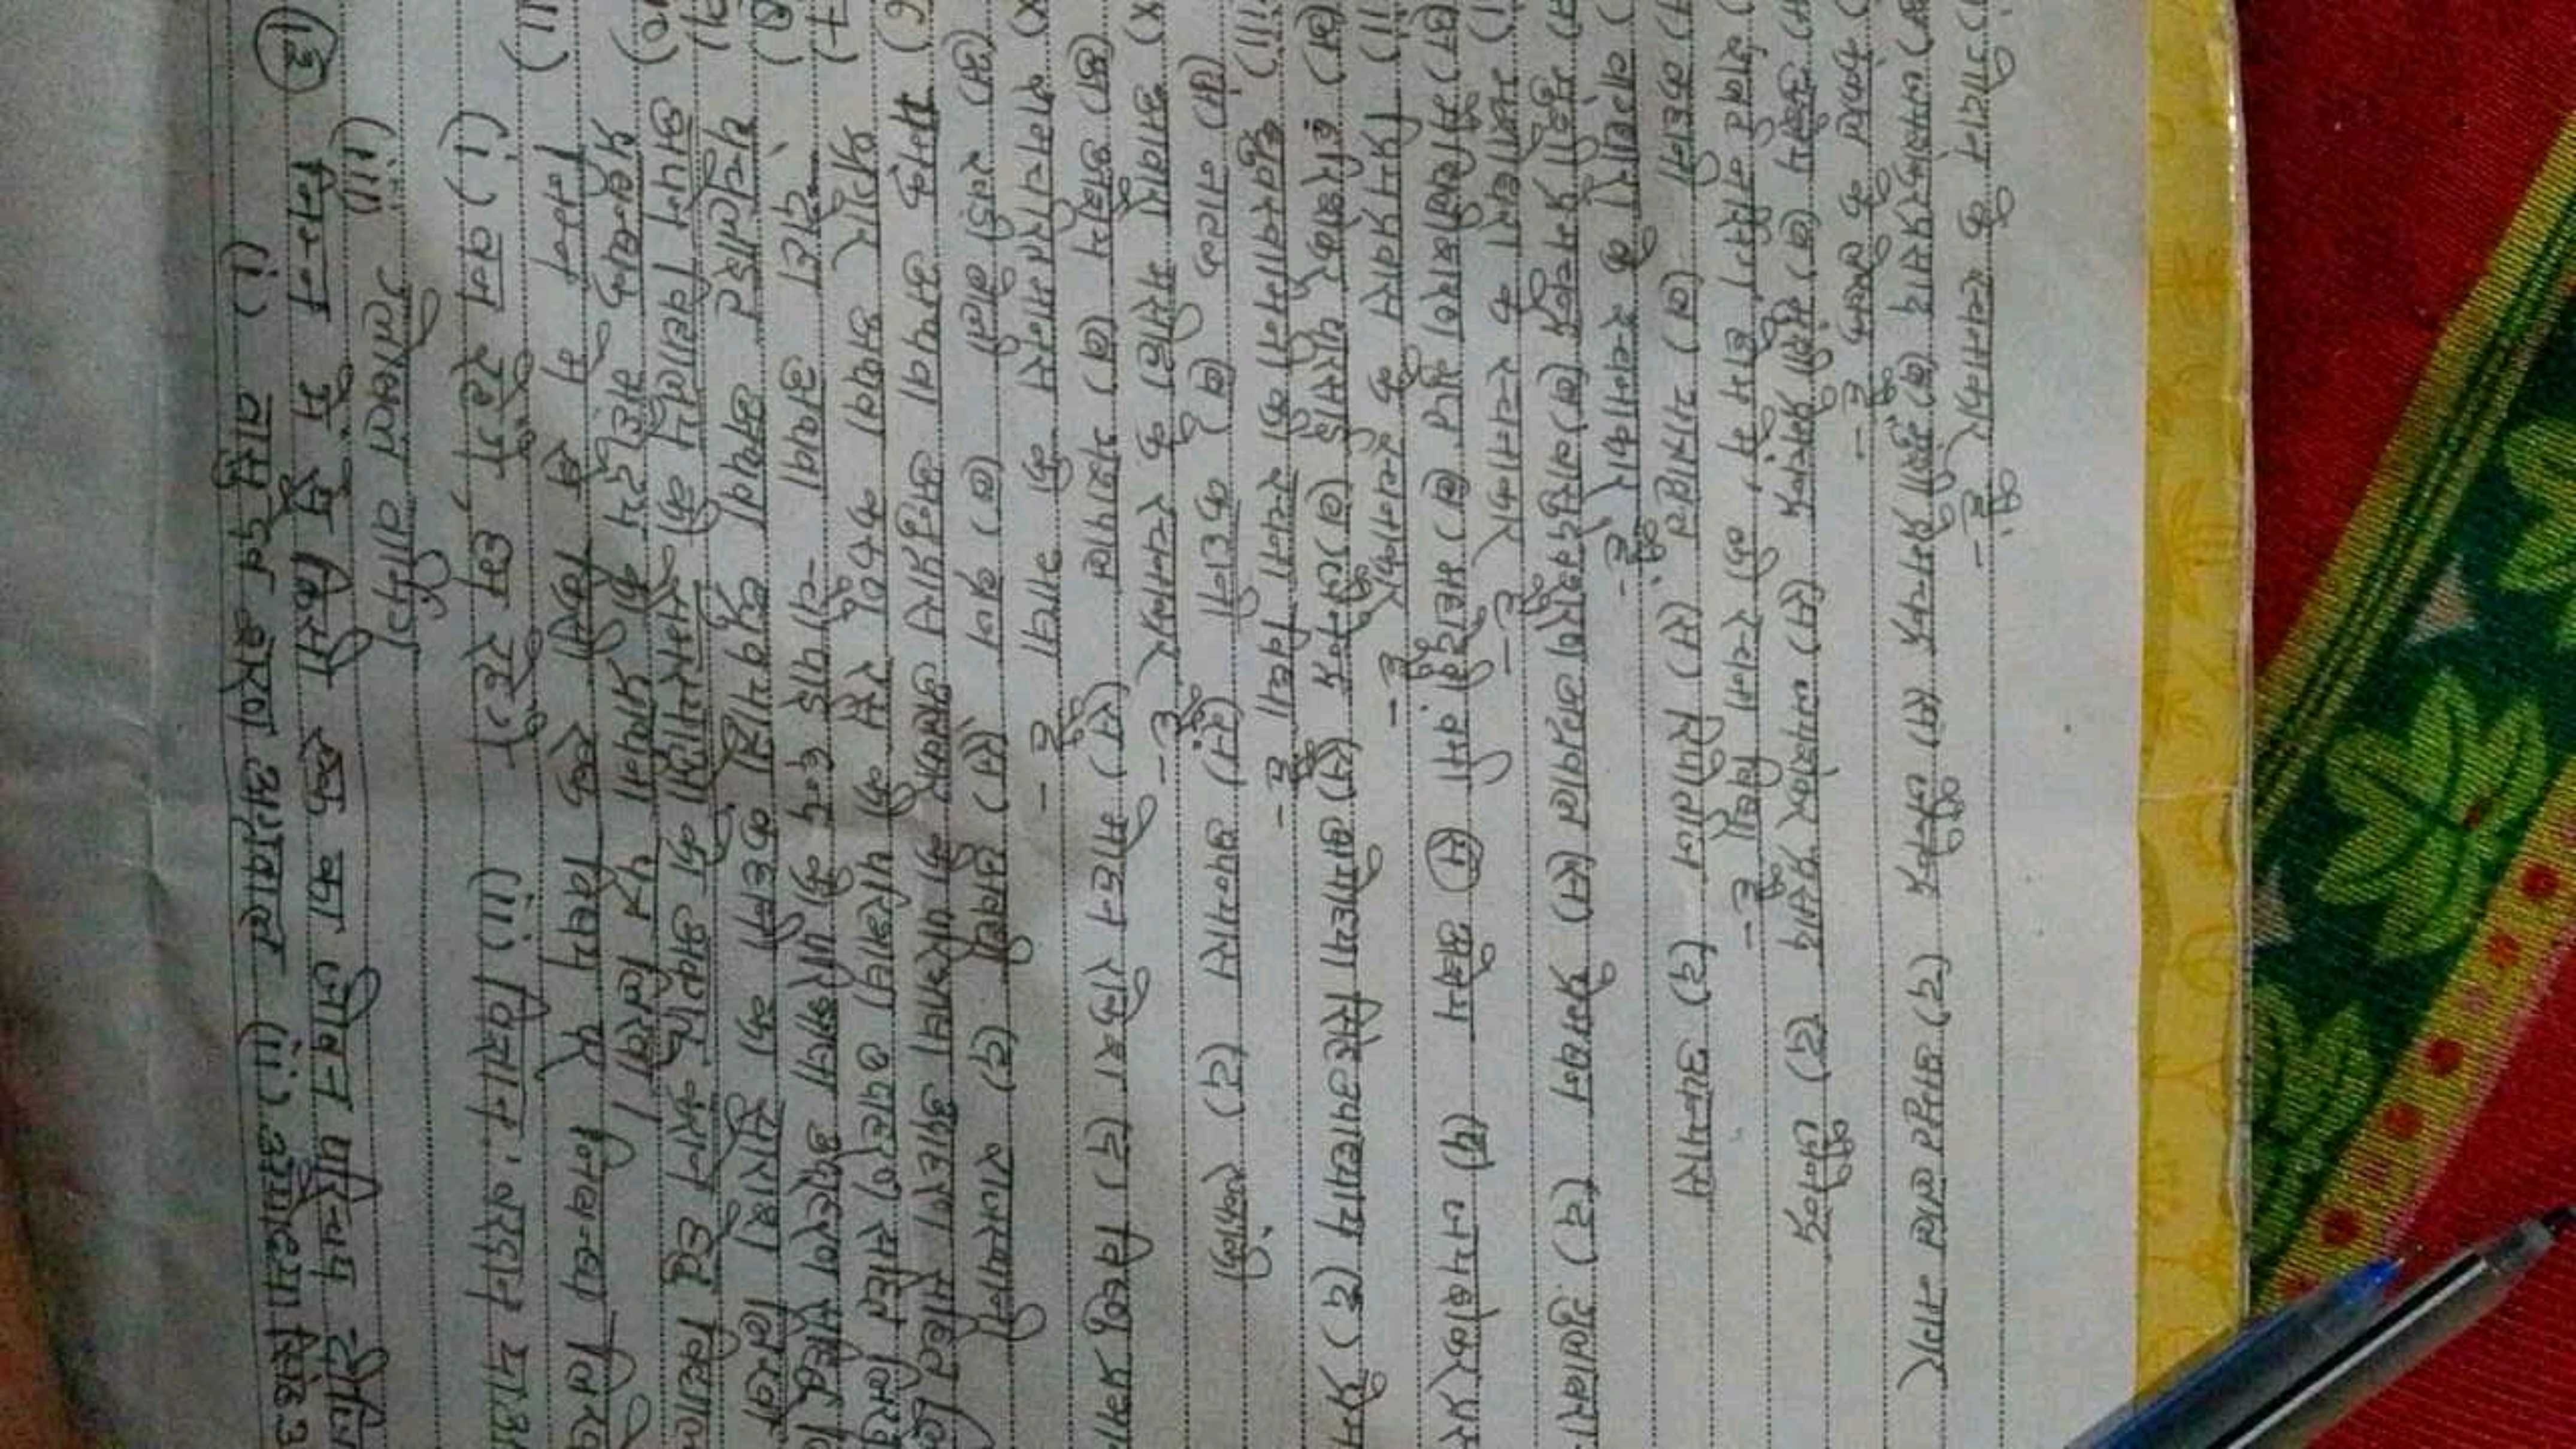 i) गोदान के रचनाकार है -
(अ) जयशंकर प्रसाद (ब) मुंशी प्रेमचन्द्र (स) जैनेन्द्र (द) अमृत लाल नागर
) कंकाल के लेखक है -
अ) अज्ञेय (ब) मुंशी प्रेमचन्द्र (स) जयशंकर प्रसाद (द) जैनेन्द्र
) की रचना विधा है -
अ) कहानी (ब) यात्रावृत्त (स) रिपोर्ताज (द) उपन्यास
) के रचनाकार है -
अ) मुंशी प्रेमचन्द्र (ब) वासुदेवशरण अग्रवाल (स) प्रेमघन (द) गुलाबरा
के रचनाकार है -
(अ) मैथिलीशरण गुप्त (ब) महादेवी वर्मा (स) अज्ञेय (द) जयशंकर प्रस
ii) प्रिय प्रवास के रचनाकार है -
(अ) हरिशंकर परसाई (ब) जैनेन्द्र (स) अयोध्या सिंह उपाध्याय (द) प्रेम
iii) ध्रुवस्वामिनी की रचना विधा है -
(अ) नाटक (ब) कहानी (स) उपन्यास (द) एकांकी
ix) आवारा मसीहा के रचनाकार है -
(अ) अज्ञेय (ब) यशपाल (स) मोहन राकेश (द) विष्णु प्रभा
x) रामचरितमानस की भाषा है -
(अ) खड़ी बोली (ब) ब्रज (स) अवधी (द) राजस्थानी
6) यमक अथवा अनुप्रास अलंकार की परिभाषा उदाहरण सहित लि
7) श्रृंगार अथवा करुण रस की परिभाषा उदाहरण सहित लिख
8) दोहा अथवा चौपाई छन्द की परिभाषा उदाहरण सहित
9) पंचलाइट अथवा ध्रुवयात्रा कहानी का सारांश लिखो
10) अपने विद्यालय की समस्याओं को अवगत कराते हुए विद्याल
प्रबन्धक महोदय को प्रार्थना पत्र लिखो।
11) निम्न में से किसी एक विषय पर निबन्ध लिख
(i) वन रहेंगे, हम रहेंगे (ii) विज्ञान: वरदान या अ
(iii)
(12) निम्न में से किसी एक का जीवन परिचय
(i) वासुदेव शरण अग्रवाल (ii) अयोध्या सिंह उ